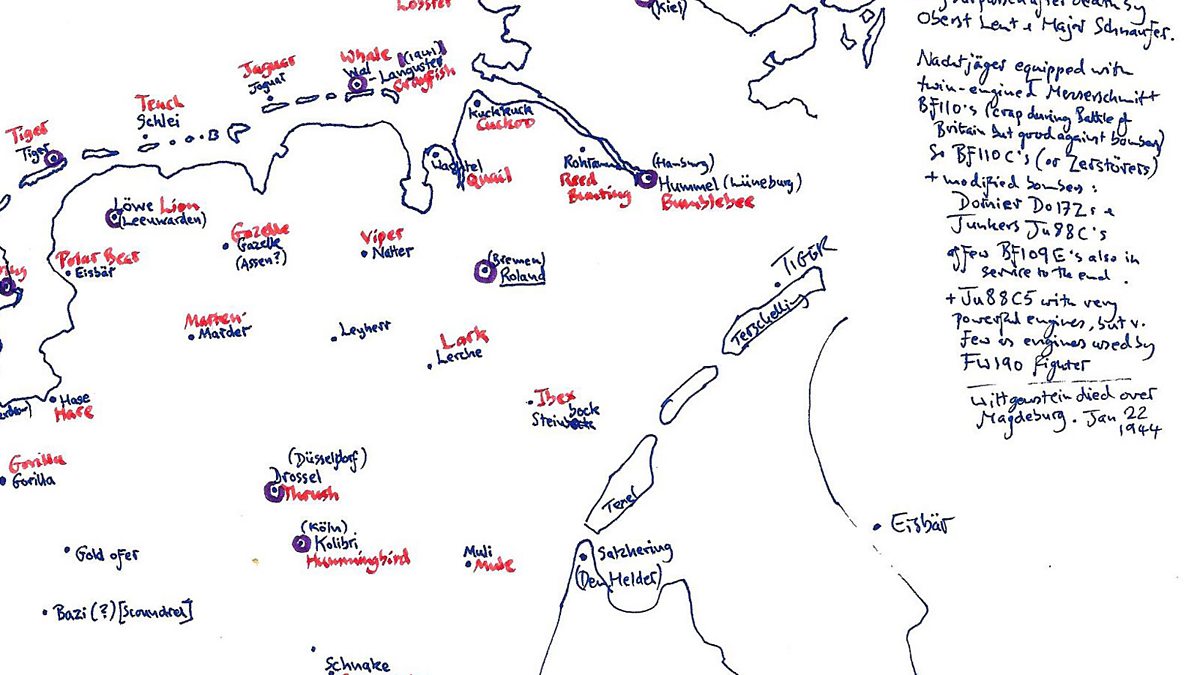 Lobster
(Kiel)
after death by
Oberst Lent & Major Schnaufer.
Nachtjäger equipped with
twin-engined Messerschmitt
BF110's (crap during Battle of
Britain but good against bombers)
So BF110C's (or Zerstörers)
+ modified bombers:
Dornier Do17Zs &
Junkers Ju88C's
A few BF109E's also in
service to the end.
+ Ju88C5 with very
powerful engines, but v.
few as engines used by
FW190 fighter
Wittgenstein died over
Magdeburg. Jan 22
1944
Jaguar
Jaguar
Whale
Wal
(1941)
Languster
Crayfish
Tench
Schlei
Tiger
Tiger
Kuckuck
Cuckoo
Wachtel
Quail
Reed
Bunting
(Hamburg)
Hummel (Lüneburg)
Bumblebee
Löwe Lion
(Leeuwarden)
Gazelle
Gazelle
(Assen?)
Viper
Natter
(Bremen)
Roland
Polar Bear
Eisbär
Marten
Marder
Leyherr
Lark
Lerche
TIGER
Terschelling
Hase
Hare
Ibex
Steinbock
Gorilla
Gorilla
(Düsseldorf)
Drossel
Thrush
Texel
(Köln)
Kolibri
Hummingbird
Muli
Mule
Salzhering
(Den Helder)
Eisbär
Gold ofer
Bazi (?) [Scoundrel]
Schnake